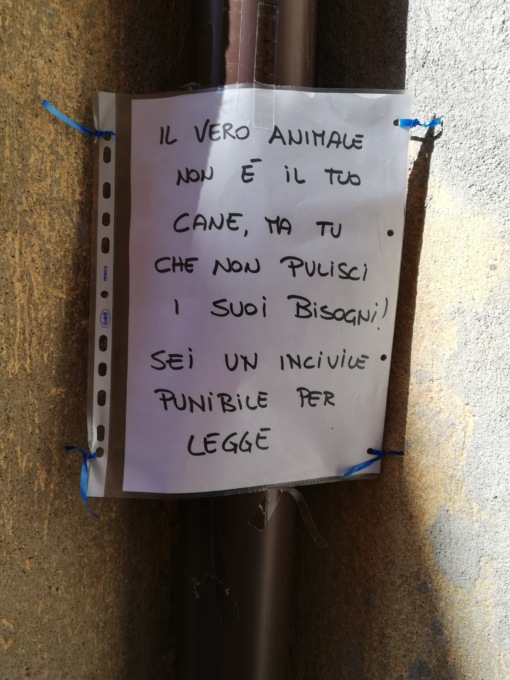 IL VERO ANIMALE
NON È IL TUO
CANE, MA TU
CHE NON PULISCI
I SUOI BISOGNI!
SEI UN INCIVILE
PUNIBILE PER
LEGGE